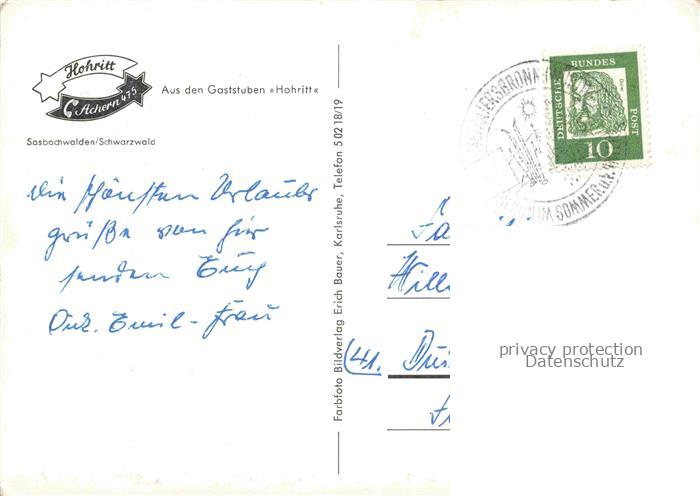 Hohritt
Achern 475
Aus den Gaststuben »Hohritt«
Sasbachwalden/Schwarzwald
Die schönsten Urlaubs
grüße von hier
senden Euch
Onk. Emil - Frau
Farbfoto Bildverlag Erich Bauer, Karlsruhe, Telefon 5 02 18/19
DEUTSCHE BUNDES POST
10
SOMMER U.
Will
(41. Duis
privacy protection
Datenschutz